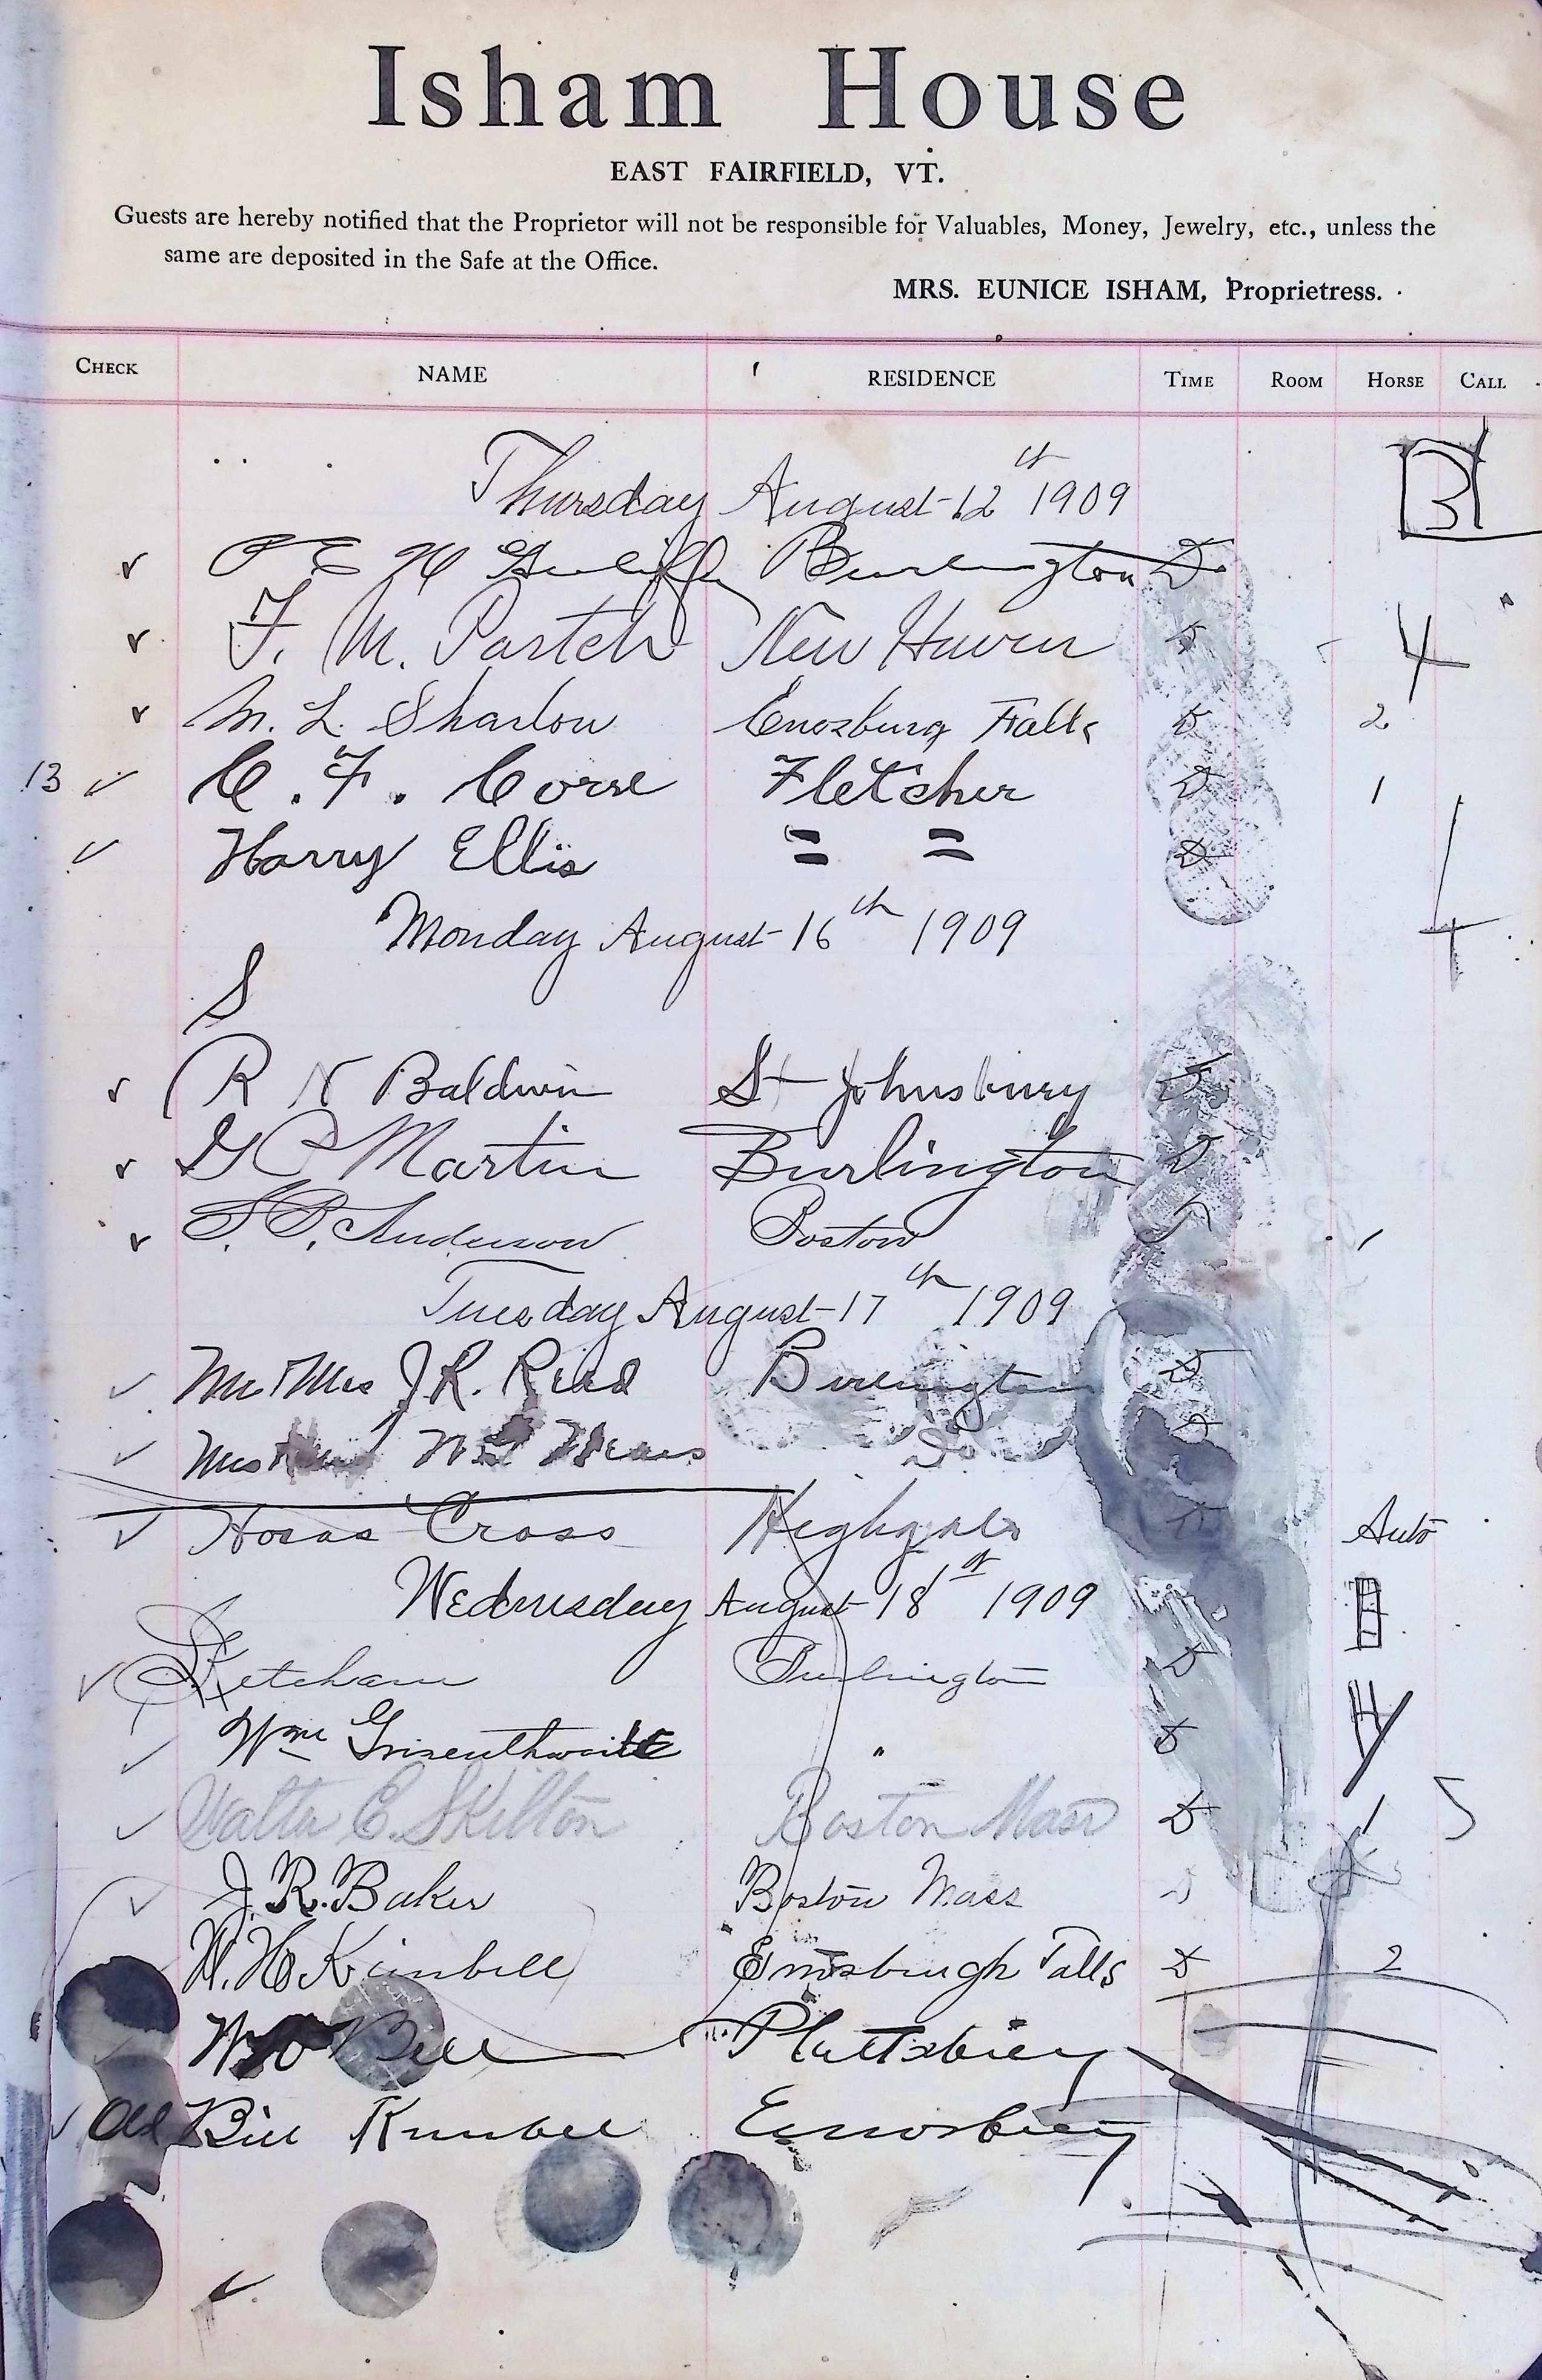 Isham House
EAST FAIRFIELD, VT.
Guests are hereby notified that the Proprietor will not be responsible for Valuables, Money, Jewelry, etc., unless the
same are deposited in the Safe at the Office.
MRS. EUNICE ISHAM, Proprietress.
CHECK NAME RESIDENCE TIME ROOM HORSE CALL
Thursday August 12th 1909
Burlington D
F. M. Partch New Haven D
M. L. Sharlow Enosburg Falls D 2
13 ✓ C. F. Corse Fletcher D 1
✓ Harry Ellis = = D
Monday August 16th 1909
S
✓ R N Baldwin St Johnsbury D
✓ G P Martin Burlington D
✓ S. P. Anderson Boston D 1
Tuesday August 17th 1909
✓ Mr & Mrs J. R. Reid Burlington D
✓ Mrs Do
✓ Cross Highgate Auto
Wednesday August 18th 1909
✓ Ketcham Burlington D
✓ Wm Grisenthwaite " D
✓ Walter C. Skilton Boston Mass D 1 5
✓ J. R. Baker Boston Mass D
W. H. Kimball Enosburgh Falls D 2
Bell Plattsburg
✓ Old Bill Kimbell Enosburg